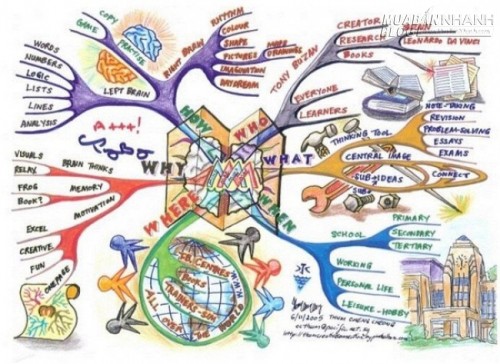 MUABANNHANH
BLOG
COPY
GAME
PRACTISE
LEFT BRAIN
WORDS
NUMBERS
LOGIC
LISTS
LINES
ANALYSIS
RIGHT BRAIN
RHYTHM
COLOUR
SHAPE
PICTURES
IMAGINATION
DAYDREAM
TONY BUZAN
CREATOR
RESEARCH
BOOKS
BRAIN
LEONARDO DA VINCI
EVERYONE
LEARNERS
HOW
WHO
WHY
WHAT
WHERE
WHEN
A+++!
VISUALS
RELAX
FROG
BOOK?
BRAIN THINKS
MEMORY
MOTIVATION
EXCEL
CREATIVE
FUN
ONE PAGE
THINKING TOOL
NOTE-TAKING
REVISION
PROBLEM-SOLVING
ESSAYS
EXAMS
CENTRAL IMAGE
SUB-IDEAS
SUB
CONNECT
SCHOOL
PRIMARY
SECONDARY
TERTIARY
WORKING
PERSONAL LIFE
LEISURE-HOBBY
BUZAN CENTRES
BOOKS
TRAINERS-SEM
ALL OVER THE WORLD
6/11/2005